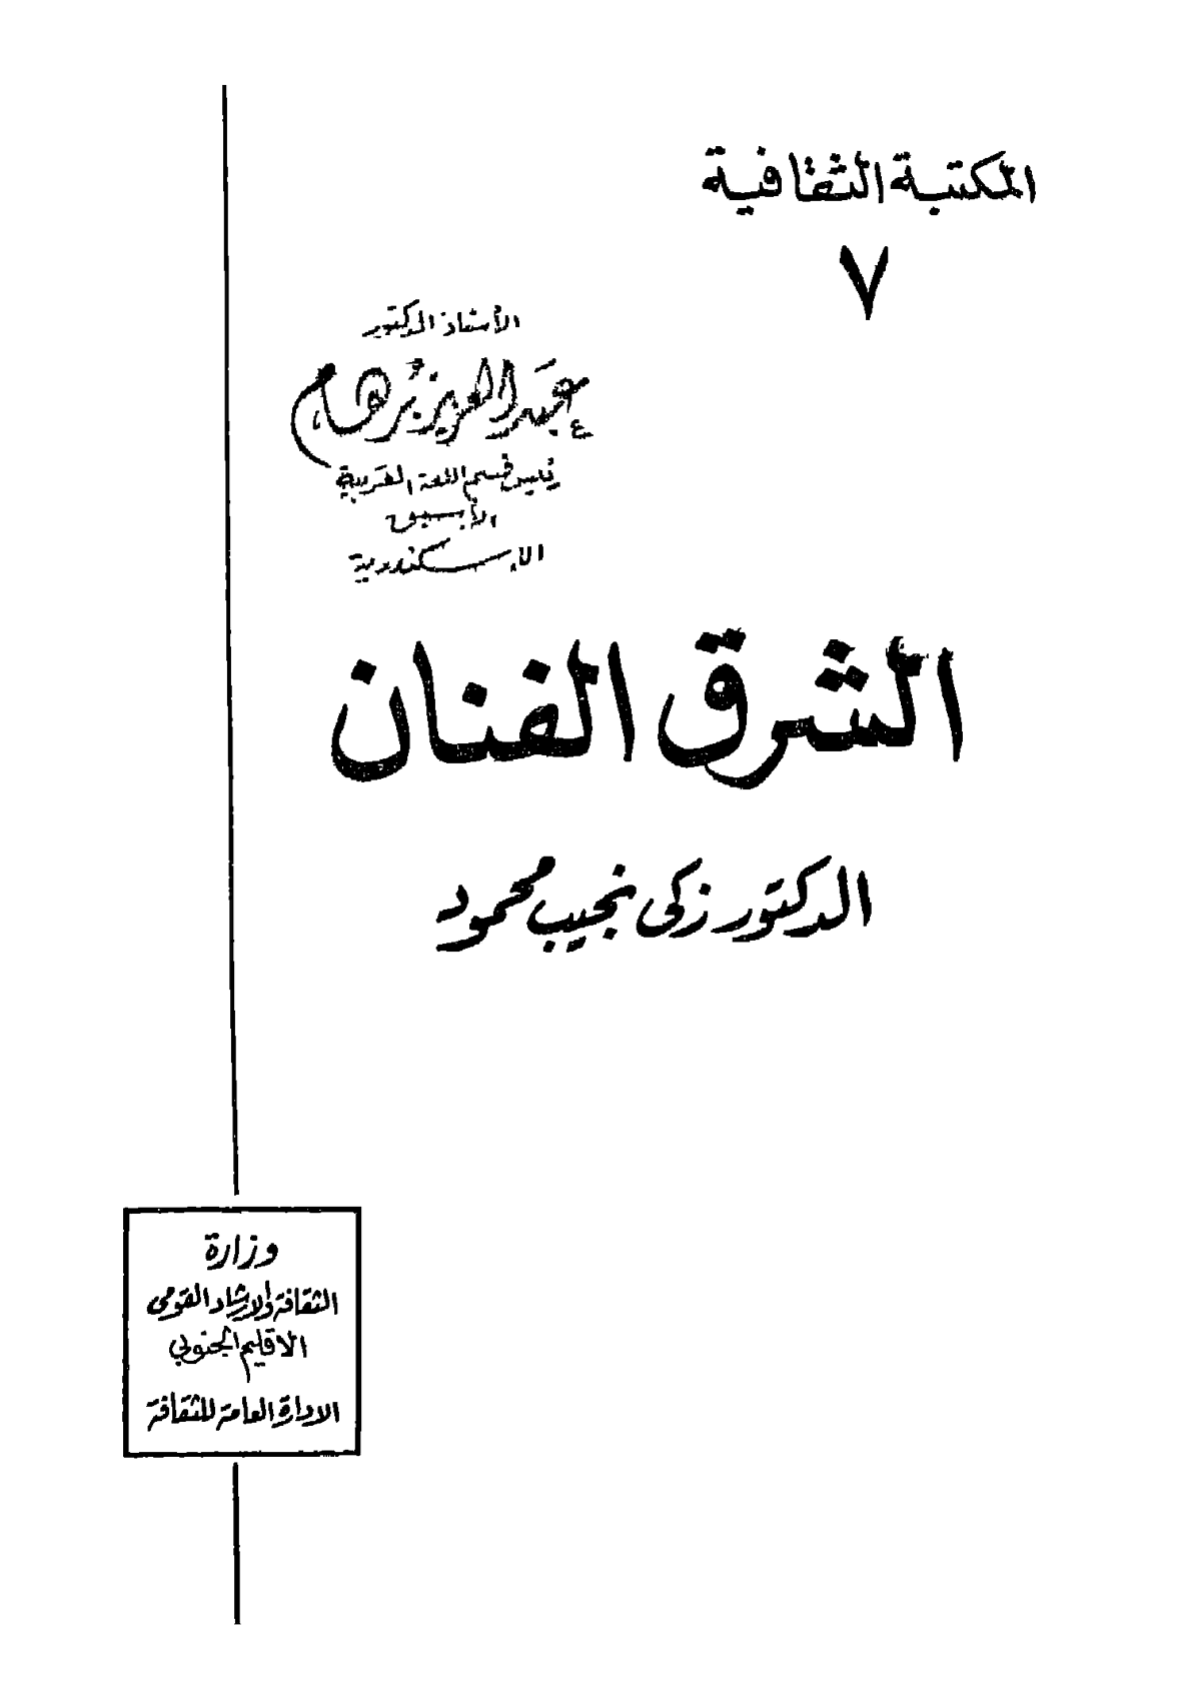 المكتبة الثقافية
٧
الأستاذ الدكتور
عبد العزيز برهام
رئيس قسم اللغة العربية
الأسبق
الإسكندرية
الشرق الفنان
الدكتور زكى نجيب محمود
وزارة
الثقافة والارشاد القومى
الاقليم الجنوبي
الادارة العامة للثقافة